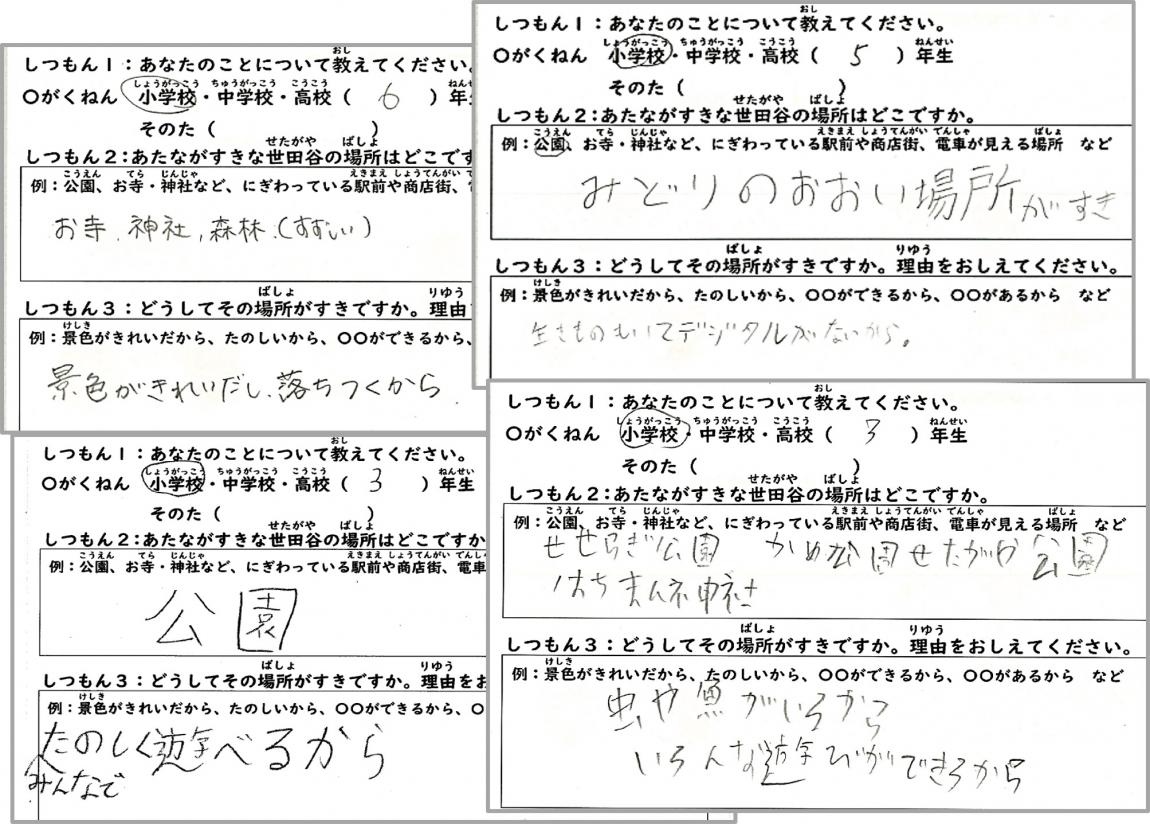 しつもん1：あなたのことについて教えてください。
〇がくねん 小学校・中学校・高校（ 6 ）年生
そのた（ ）
しつもん2：あたながすきな世田谷の場所はどこです
例：公園、お寺・神社など、にぎわっている駅前や商店街、
お寺、神社、森林、（すずしい）
しつもん3：どうしてその場所がすきですか。理由
例：景色がきれいだから、たのしいから、〇〇ができるから、
景色がきれいだし、落ちつくから
しつもん1：あなたのことについて教えてください。
〇がくねん 小学校・中学校・高校（ 5 ）年生
そのた（ ）
しつもん2：あたながすきな世田谷の場所はどこですか。
例：公園、お寺・神社など、にぎわっている駅前や商店街、電車が見える場所 など
みどりのおおい場所がすき
しつもん3：どうしてその場所がすきですか。理由をおしえてください。
例：景色がきれいだから、たのしいから、〇〇ができるから、〇〇があるから など
生きものもいてデジタルがないから。
しつもん1：あなたのことについて教えてください。
〇がくねん 小学校・中学校・高校（ 3 ）年生
そのた（ ）
しつもん2：あたながすきな世田谷の場所はどこですか
例：公園、お寺・神社など、にぎわっている駅前や商店街、電車
公園
しつもん3：どうしてその場所がすきですか。理由をお
例：景色がきれいだから、たのしいから、〇〇ができるから、〇
たのしく遊べるから
みんなで
しつもん1：あなたのことについて教えてください。
〇がくねん 小学校・中学校・高校（ 3 ）年生
そのた（ ）
しつもん2：あたながすきな世田谷の場所はどこですか。
例：公園、お寺・神社など、にぎわっている駅前や商店街、電車が見える場所 など
せせらぎ公園 かめ公園 せたがや公園
はちまん神社
しつもん3：どうしてその場所がすきですか。理由をおしえてください。
例：景色がきれいだから、たのしいから、〇〇ができるから、〇〇があるから など
虫や魚がいるから
いろんな遊びができるから